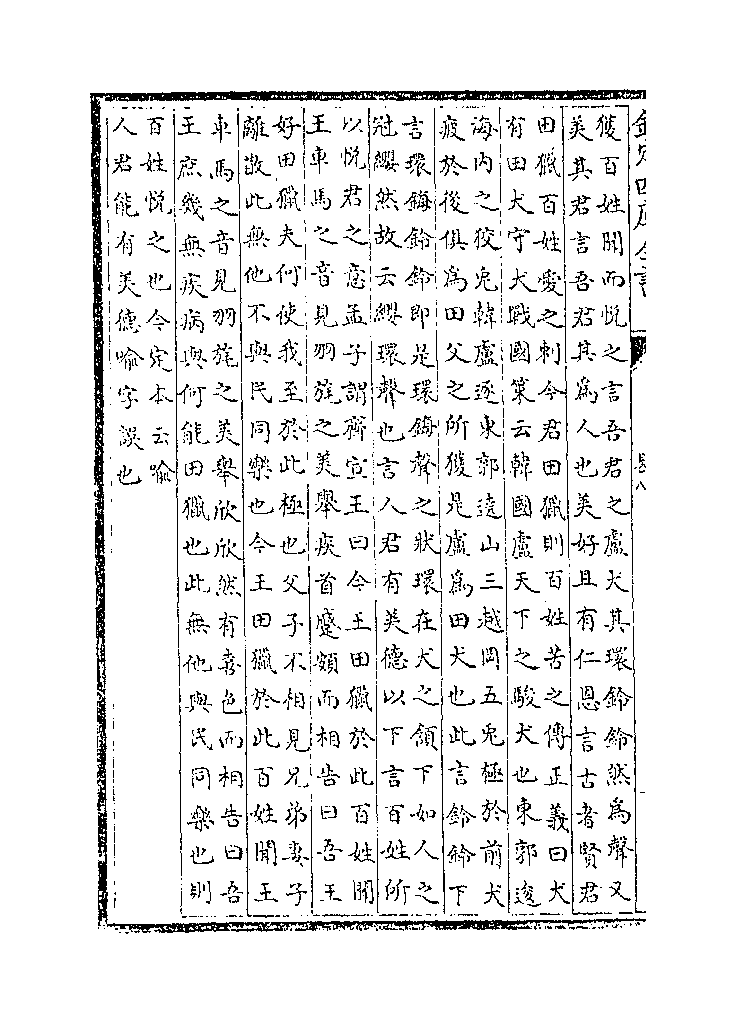 欽定四庫全書
卷八
獲百姓聞而悦之言吾君之盧犬其環鈴鈴然為聲又
美其君言吾君其為人也美好且有仁恩言古者賢君
田獵百姓愛之刺今君田獵則百姓苦之傳正義曰犬
有田犬守犬戰國策云韓國盧天下之駿犬也東郭逡
海内之狡兎韓盧逐東郭逡山三越岡五兎極於前犬
疲於後俱為田父之所獲是盧為田犬也此言鈴鈴下
言環鋂鈴鈴即是環鋂聲之狀環在犬之頷下如人之
冠纓然故云纓環聲也言人君有美德以下言百姓所
以悦君之意孟子謂齊宣王曰今王田獵於此百姓聞
王車馬之音見羽旄之美舉疾首蹙頞而相告曰吾王
好田獵夫何使我至於此極也父子不相見兄弟妻子
離散此無他不與民同樂也今王田獵於此百姓聞王
車馬之音見羽旄之美舉欣欣然有喜色而相告曰吾
王庶幾無疾病與何能田獵也此無他與民同樂也則
百姓悦之也今定本云喻
人君能有美德喻字誤也